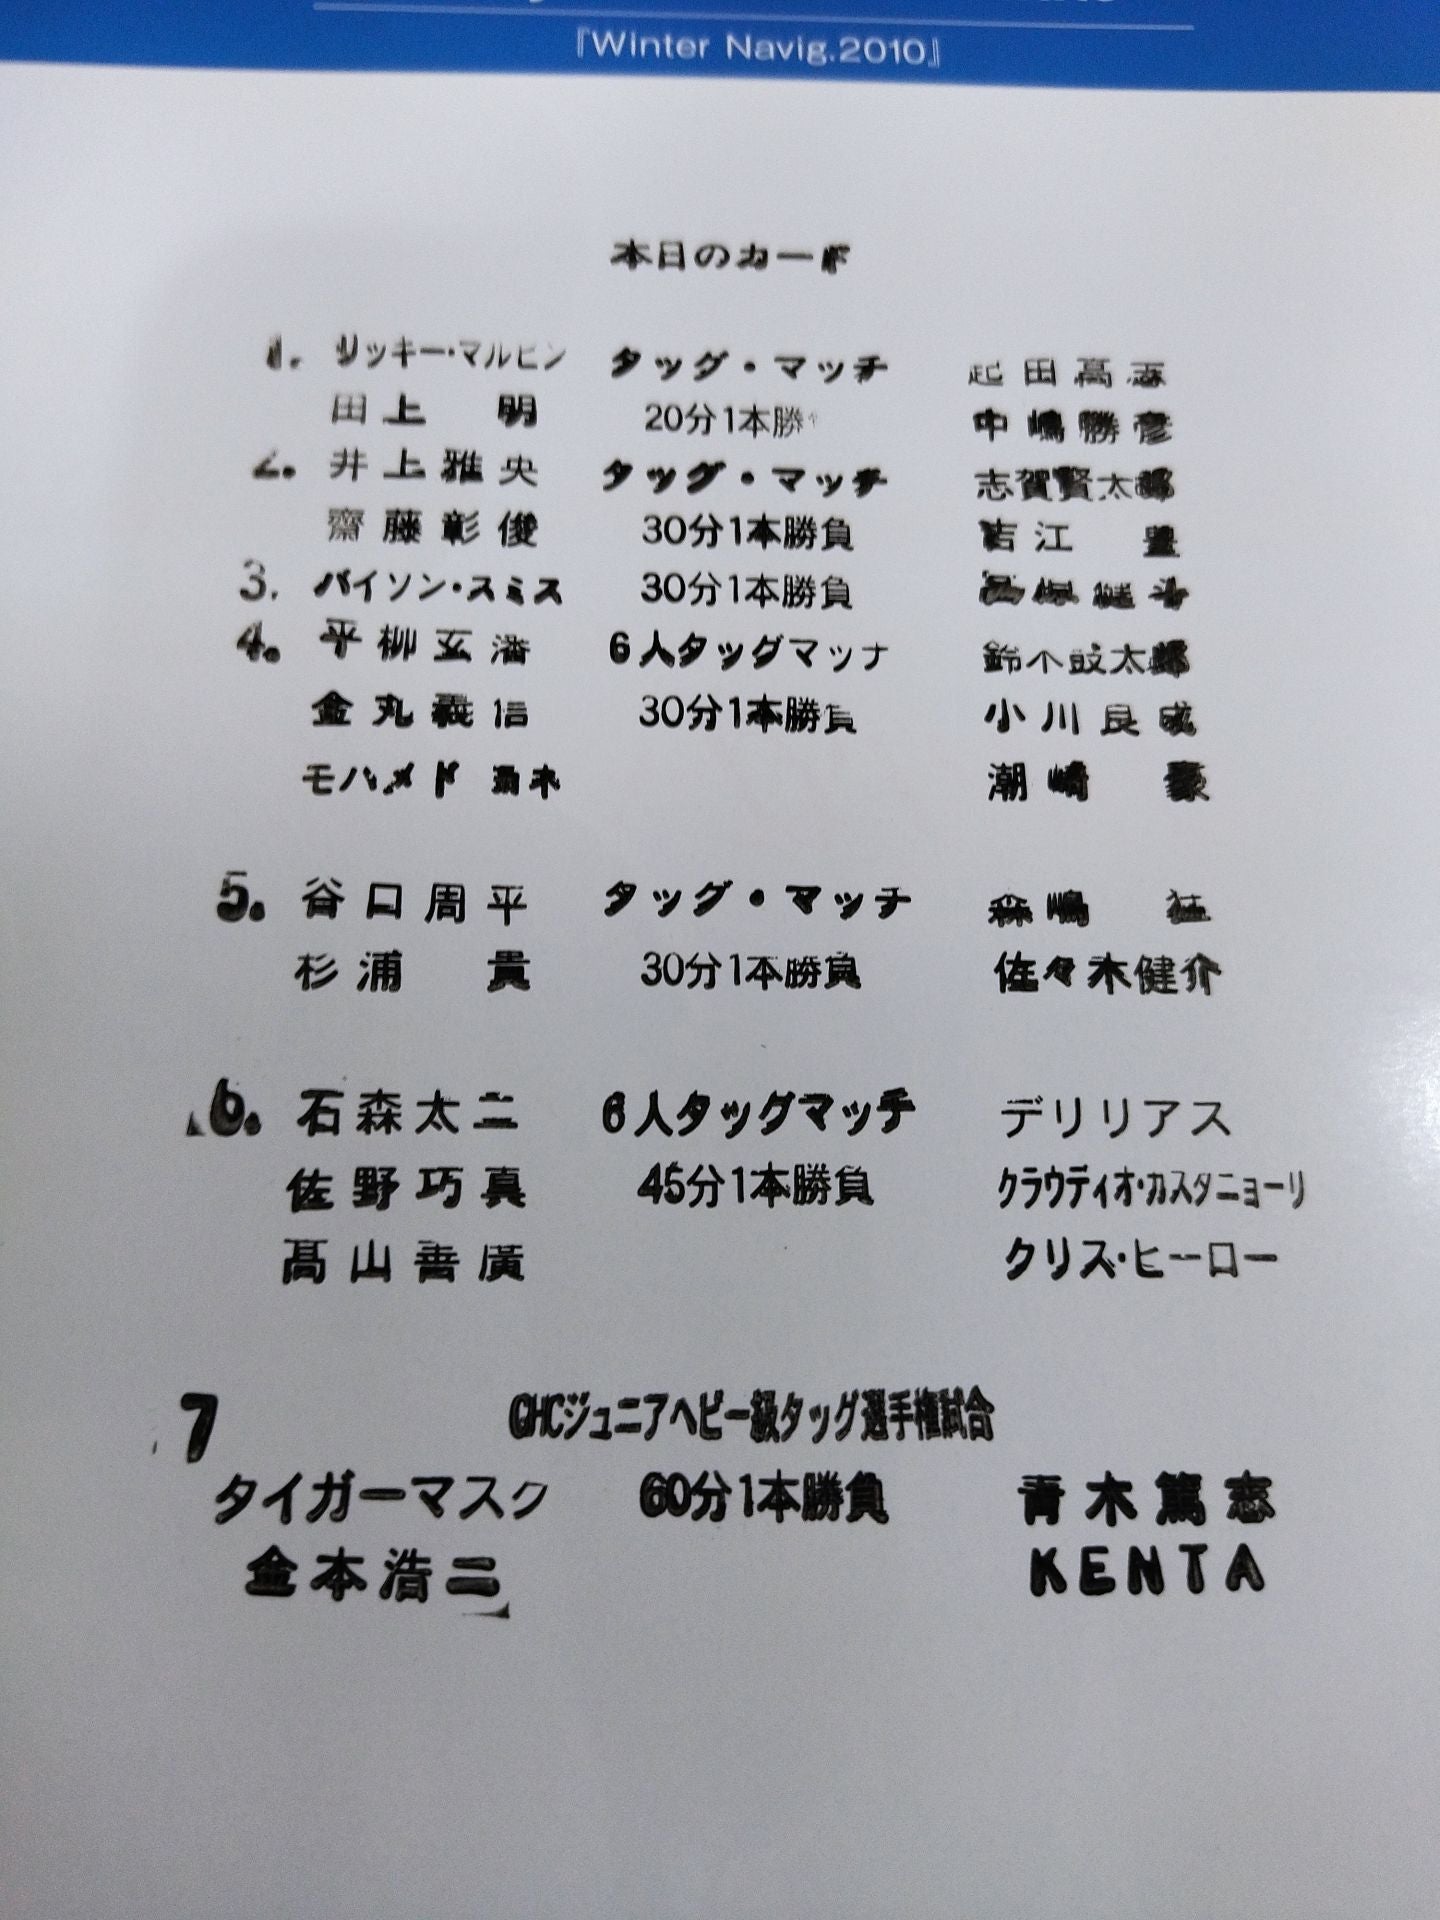 『Winter Navig.2010』
本日のカード
1. リッキー・マルビン タッグ・マッチ 起田高志
田上 明 20分1本勝 中嶋勝彦
2. 井上雅央 タッグ・マッチ 志賀賢太郎
齋藤彰俊 30分1本勝負 吉江 豊
3. バイソン・スミス 30分1本勝負
4. 平柳玄藩 6人タッグマッチ 鈴木鼓太郎
金丸義信 30分1本勝負 小川良成
モハメド ヨネ 潮崎 豪
5. 谷口周平 タッグ・マッチ 森嶋 猛
杉浦 貴 30分1本勝負 佐々木健介
6. 石森太二 6人タッグマッチ デリリアス
佐野巧真 45分1本勝負 クラウディオ・カスタニョーリ
髙山善廣 クリス・ヒーロー
7 GHCジュニアヘビー級タッグ選手権試合
タイガーマスク 60分1本勝負 青木篤志
金本浩二 KENTA